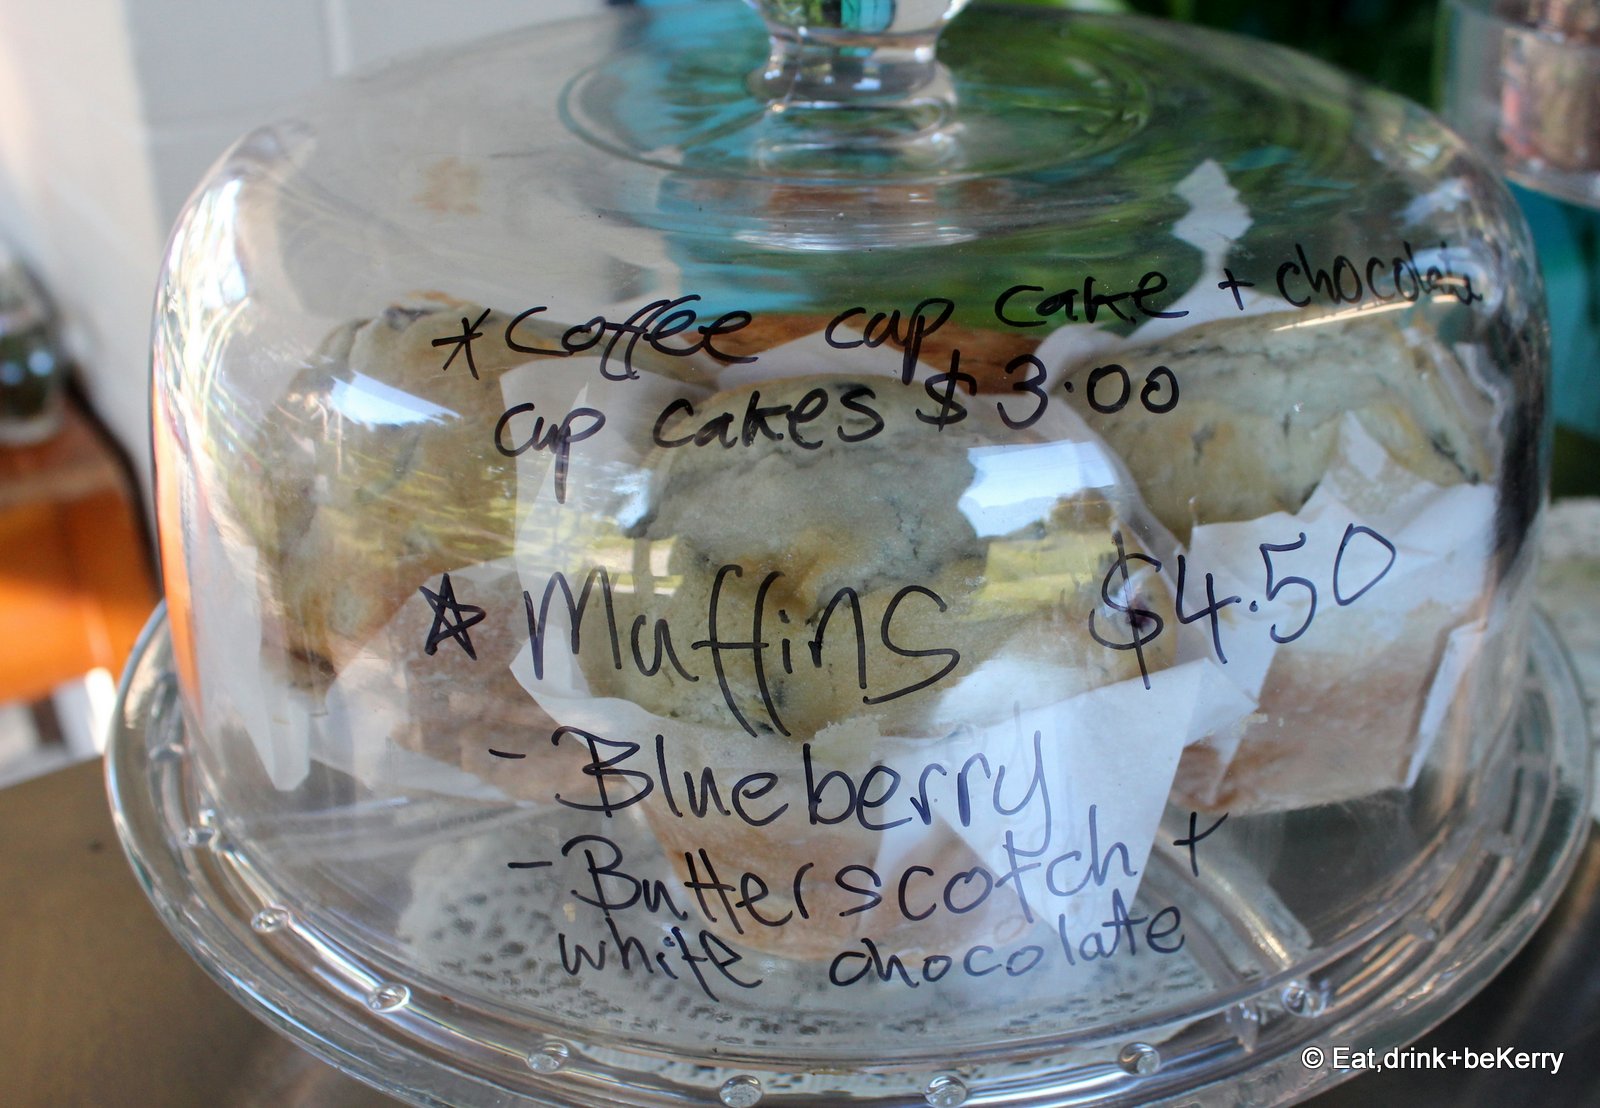 * Coffee cup cake + chocolate
cup cakes $3.00
☆ Muffins $4.50
- Blueberry
- Butterscotch +
white chocolate
© Eat,drink+beKerry